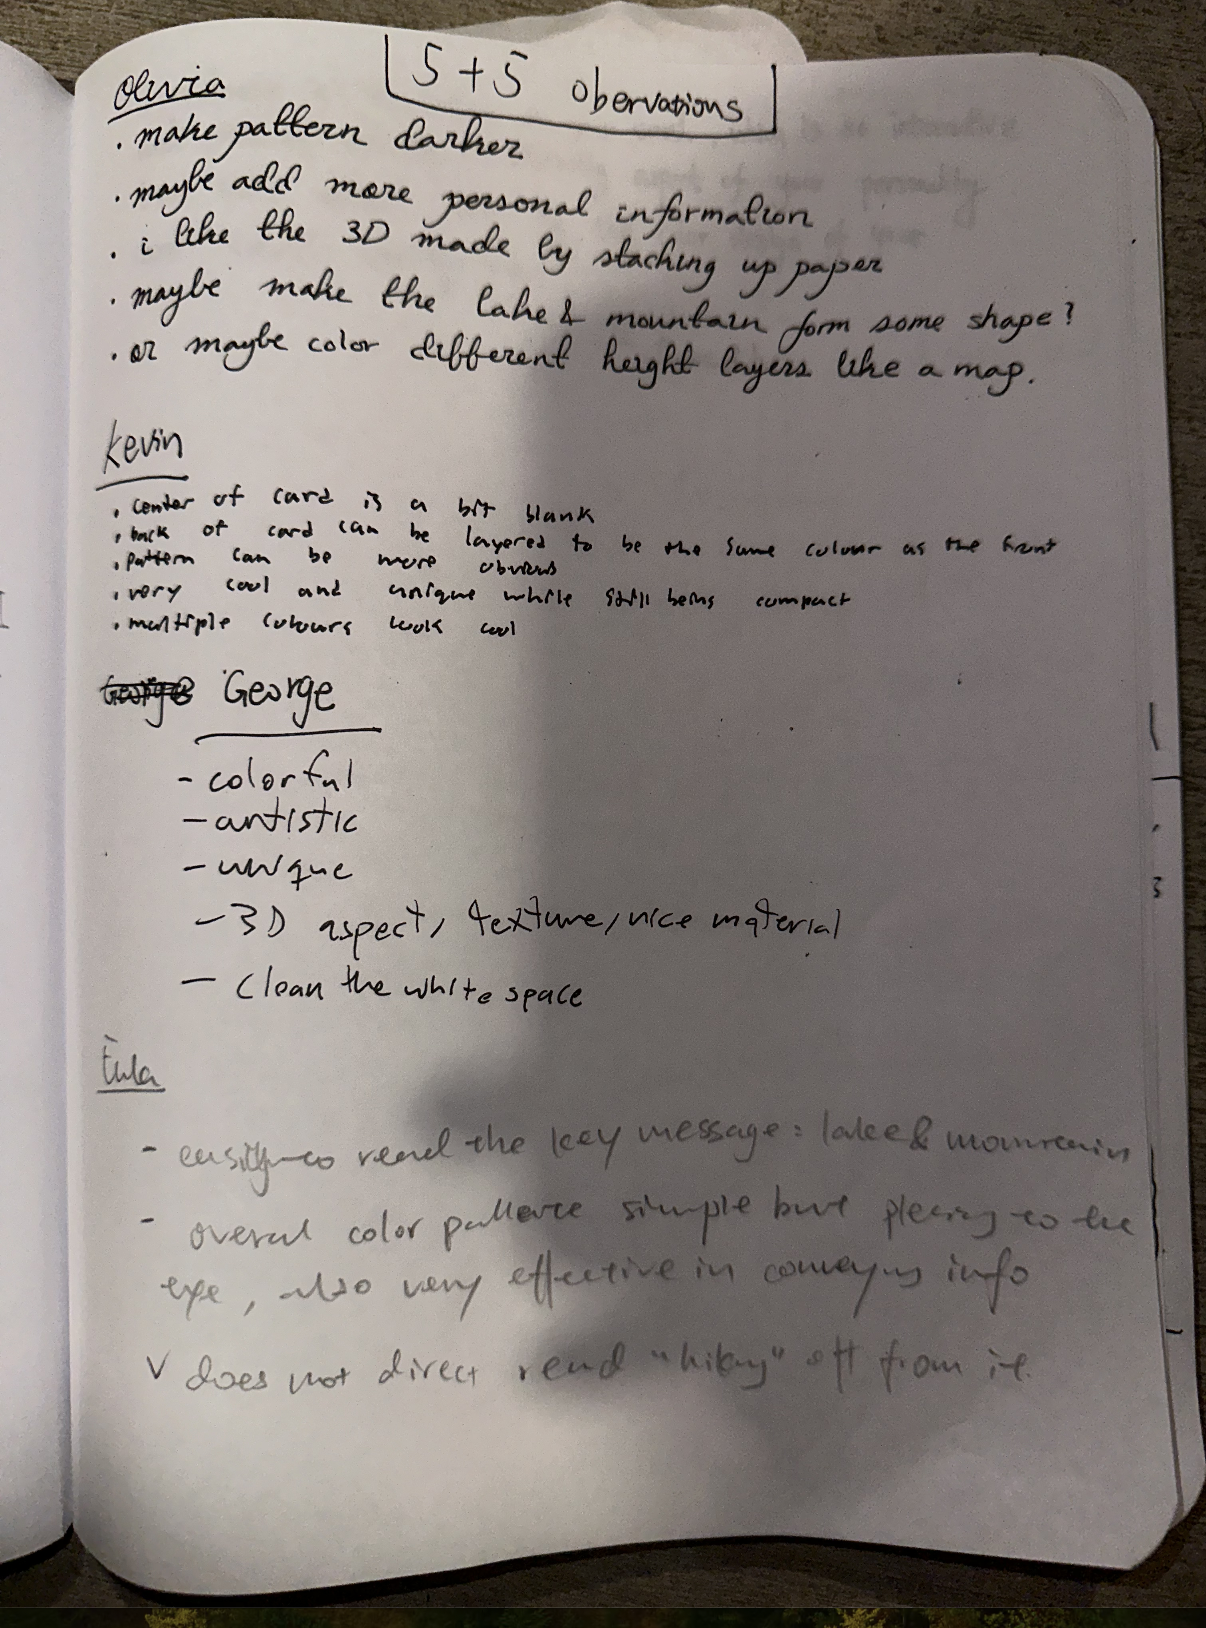 5+5 obervations
Olivia
· make pattern darker
· maybe add more personal information
· i like the 3D made by stacking up paper
· maybe make the lake & mountain form some shape?
· or maybe color different height layers like a map.
Kevin
· center of card is a bit blank
· back of card can be layered to be the same colour as the front
· pattern can be more obvious
· very cool and unique while still being compact
· multiple colours look cool
George George
- colorful
- artistic
- unique
- 3D aspect, texture, nice material
- clean the white space
- easily to read the key message: lake & mountains
- overall color simple but pleasing to the
eye, also very effective in conveying info
v does not direct read "hiking" off from it.